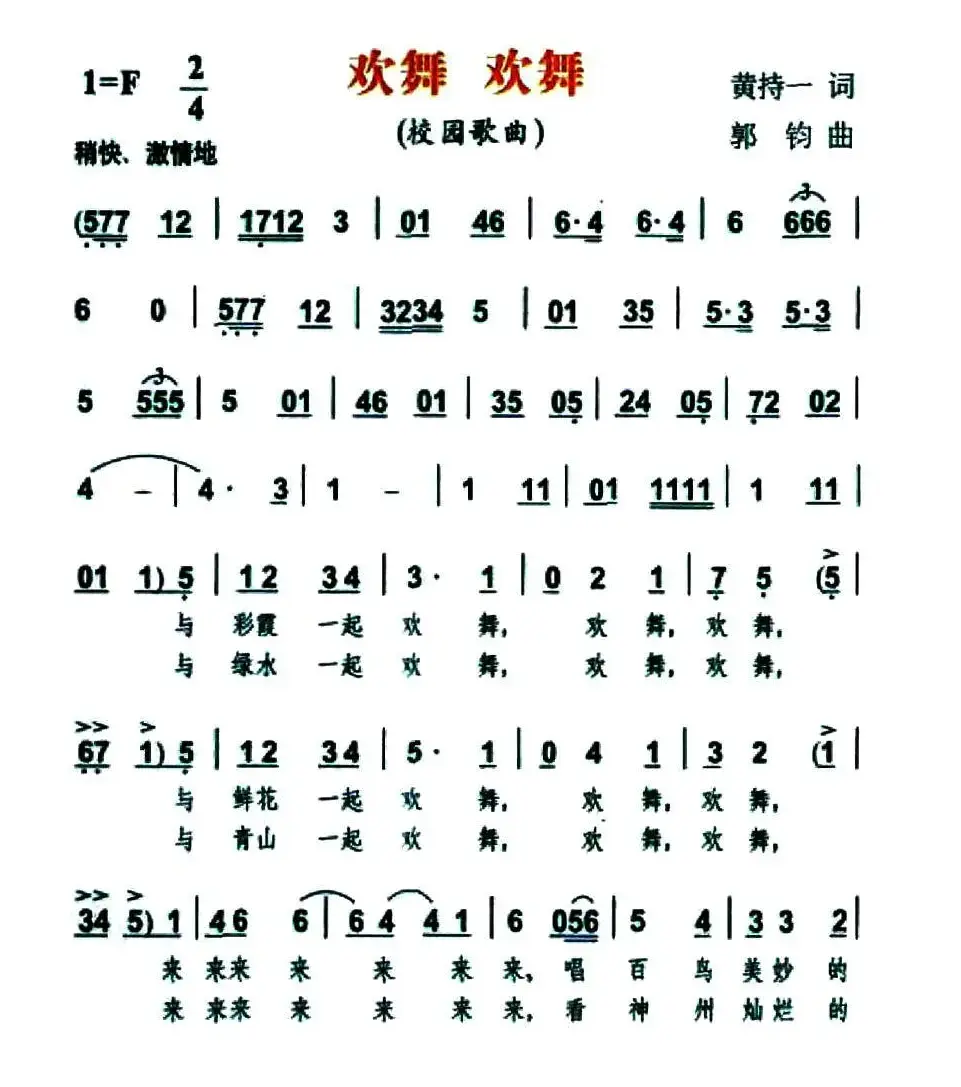 1=F 2/4 欢舞 欢舞 黄持一 词
(校园歌曲) 郭 钧 曲
稍快、激情地
(577 12 | 1712 3 | 01 46 | 6·4 6·4 | 6 666 |
6 0 | 577 12 | 3234 5 | 01 35 | 5·3 5·3 |
5 555 | 5 01 | 46 01 | 35 05 | 24 05 | 72 02 |
4 - | 4· 3 | 1 - | 1 11 | 01 1111 | 1 11 |
01 1) 5 | 12 34 | 3· 1 | 0 2 1 | 7 5 (5 |
与 彩霞 一起 欢 舞, 欢 舞, 欢 舞,
与 绿水 一起 欢 舞, 欢 舞, 欢 舞,
67 1) 5 | 12 34 | 5· 1 | 0 4 1 | 3 2 (1 |
与 鲜花 一起 欢 舞, 欢 舞, 欢 舞,
与 青山 一起 欢 舞, 欢 舞, 欢 舞,
34 5) 1 | 46 6 | 64 41 | 6 056 | 5 4 | 3 3 2 |
来 来来 来 来 来 来, 唱 百 鸟 美 妙 的
来 来来 来 来 来 来, 看 神 州 灿 烂 的